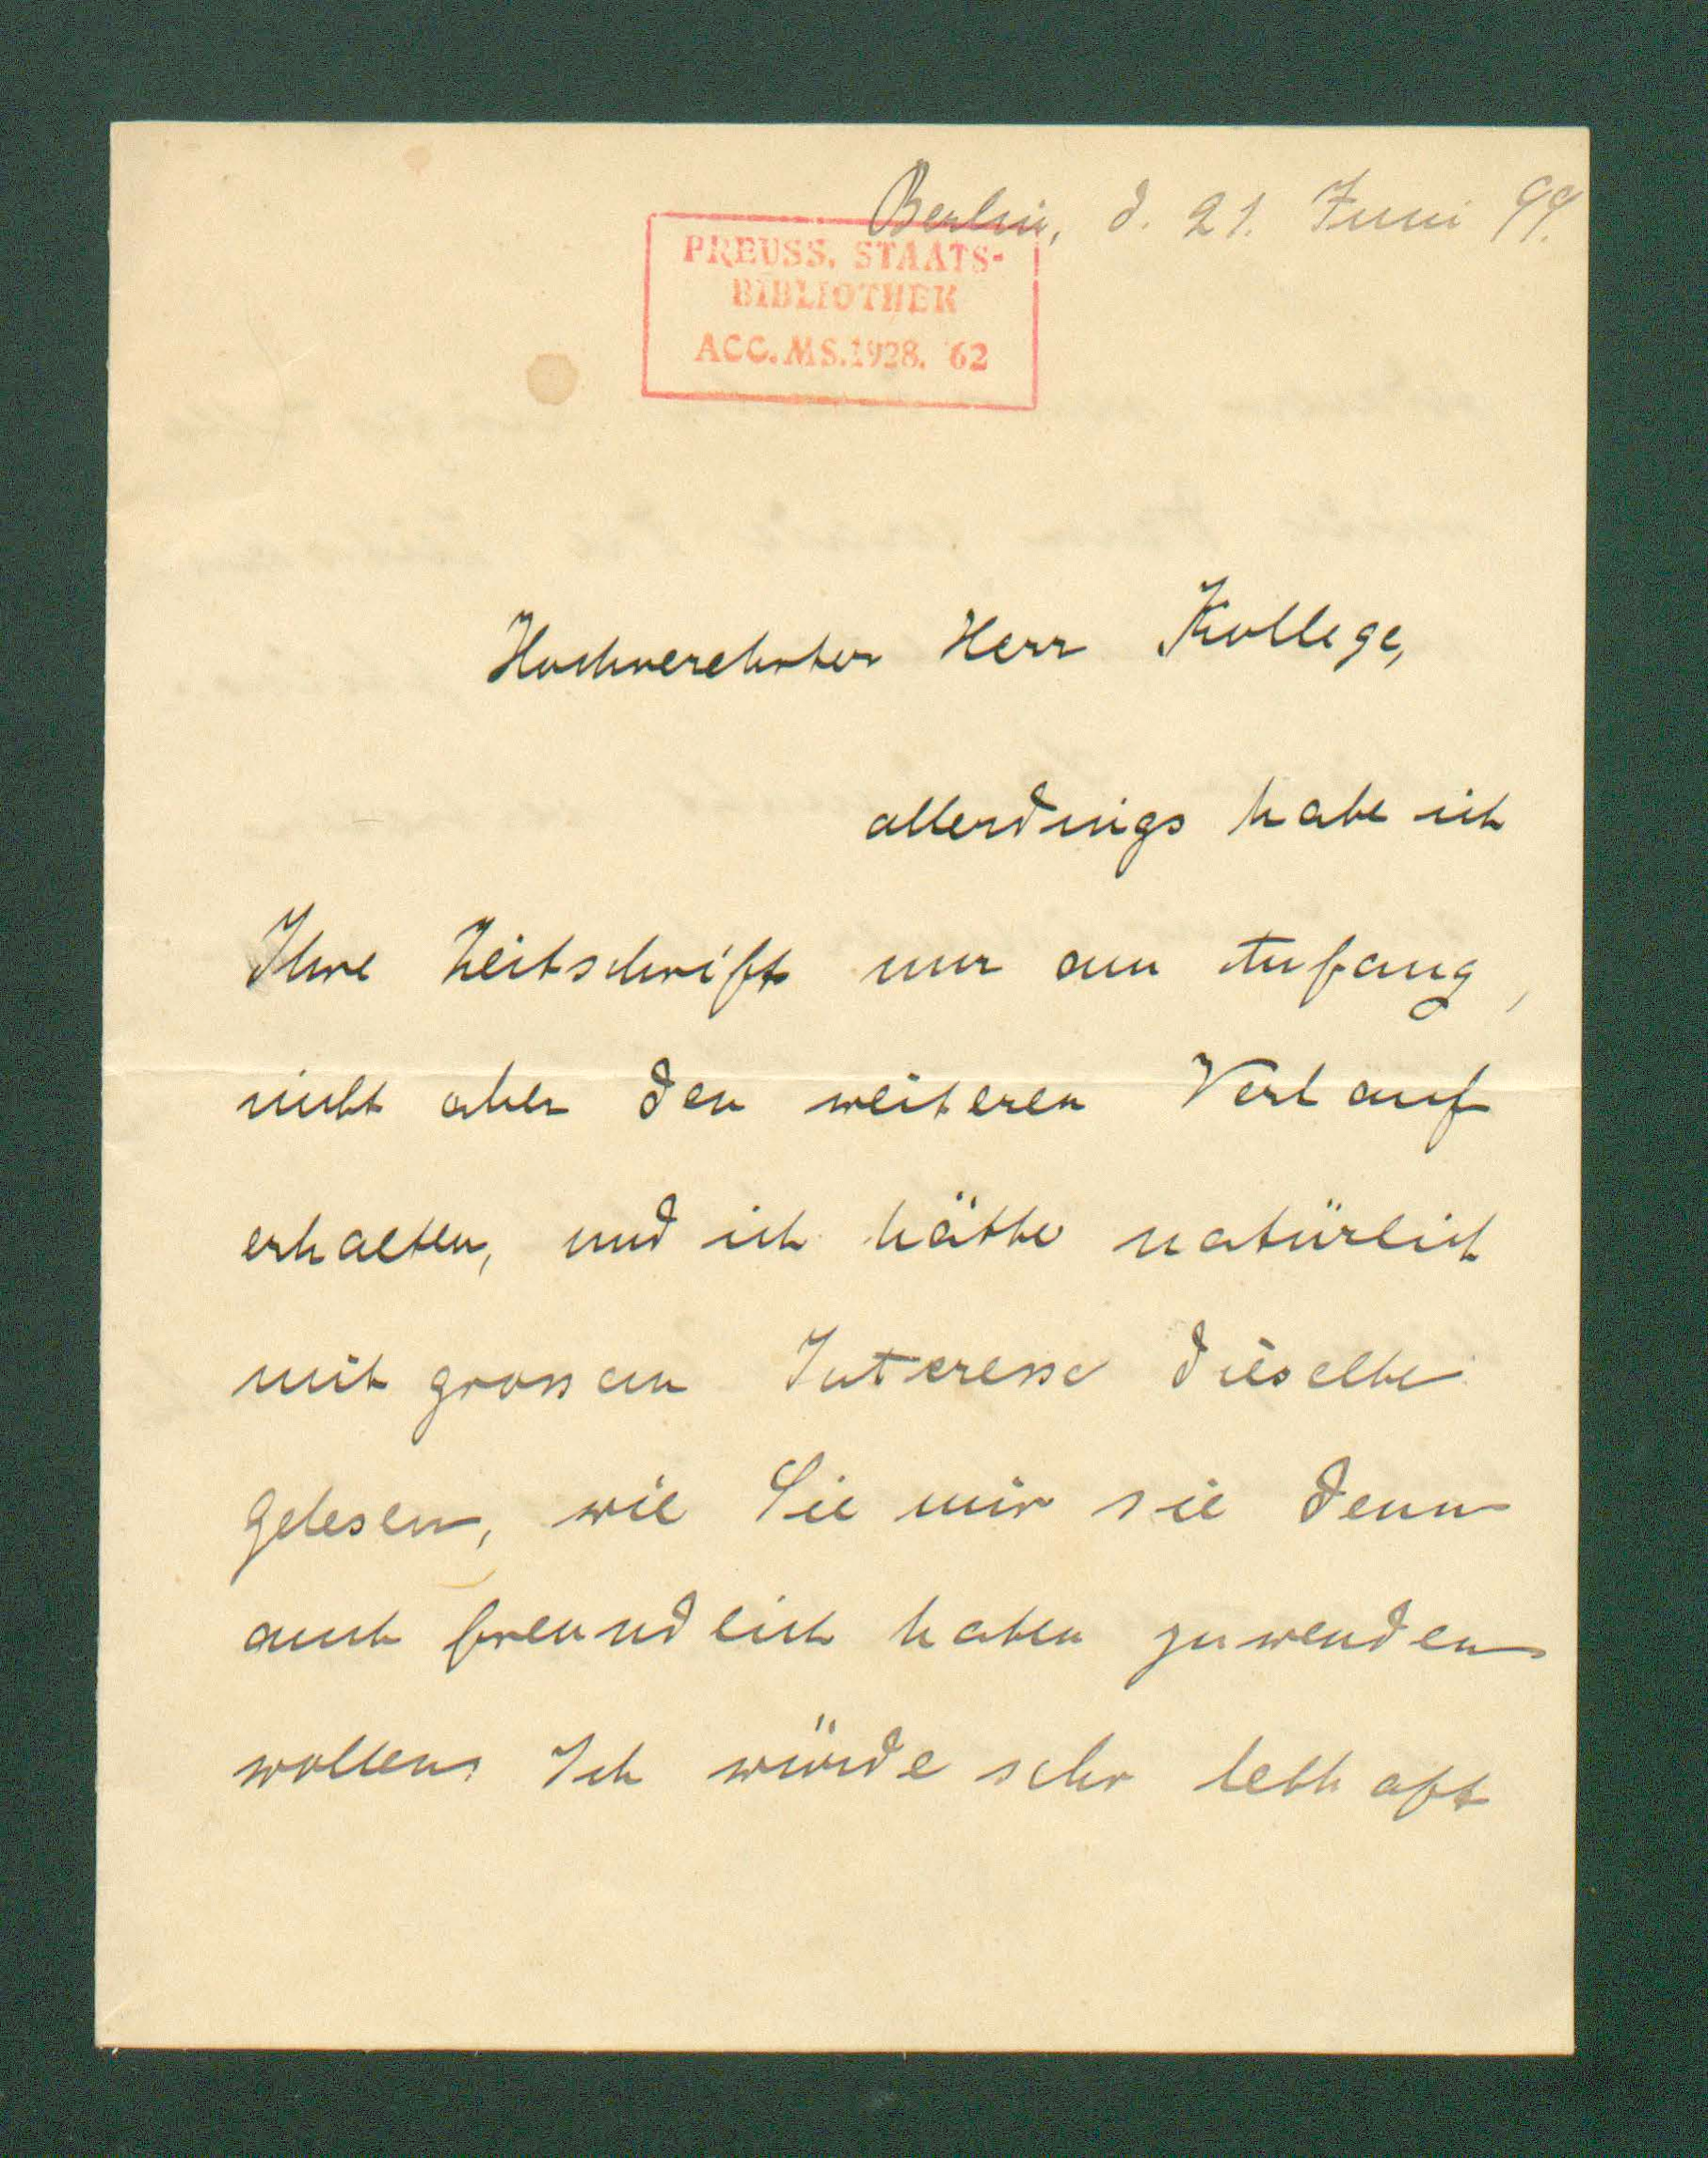 Berlin, d. 21. Juni 99.
PREUSS. STAATS-
BIBLIOTHEK
ACC. MS. 1928. 62
Hochverehrter Herr Kollege,
allerdings habe ich
Ihre Zeitschrift nur am Anfang,
nicht aber den weiteren Verlauf
erhalten, und ich hätte natürlich
mit grossem Interesse dieselbe
gelesen, wie Sie mir sie denn
auch freundlich haben zuwenden
wollen. Ich würde sehr lebhaft